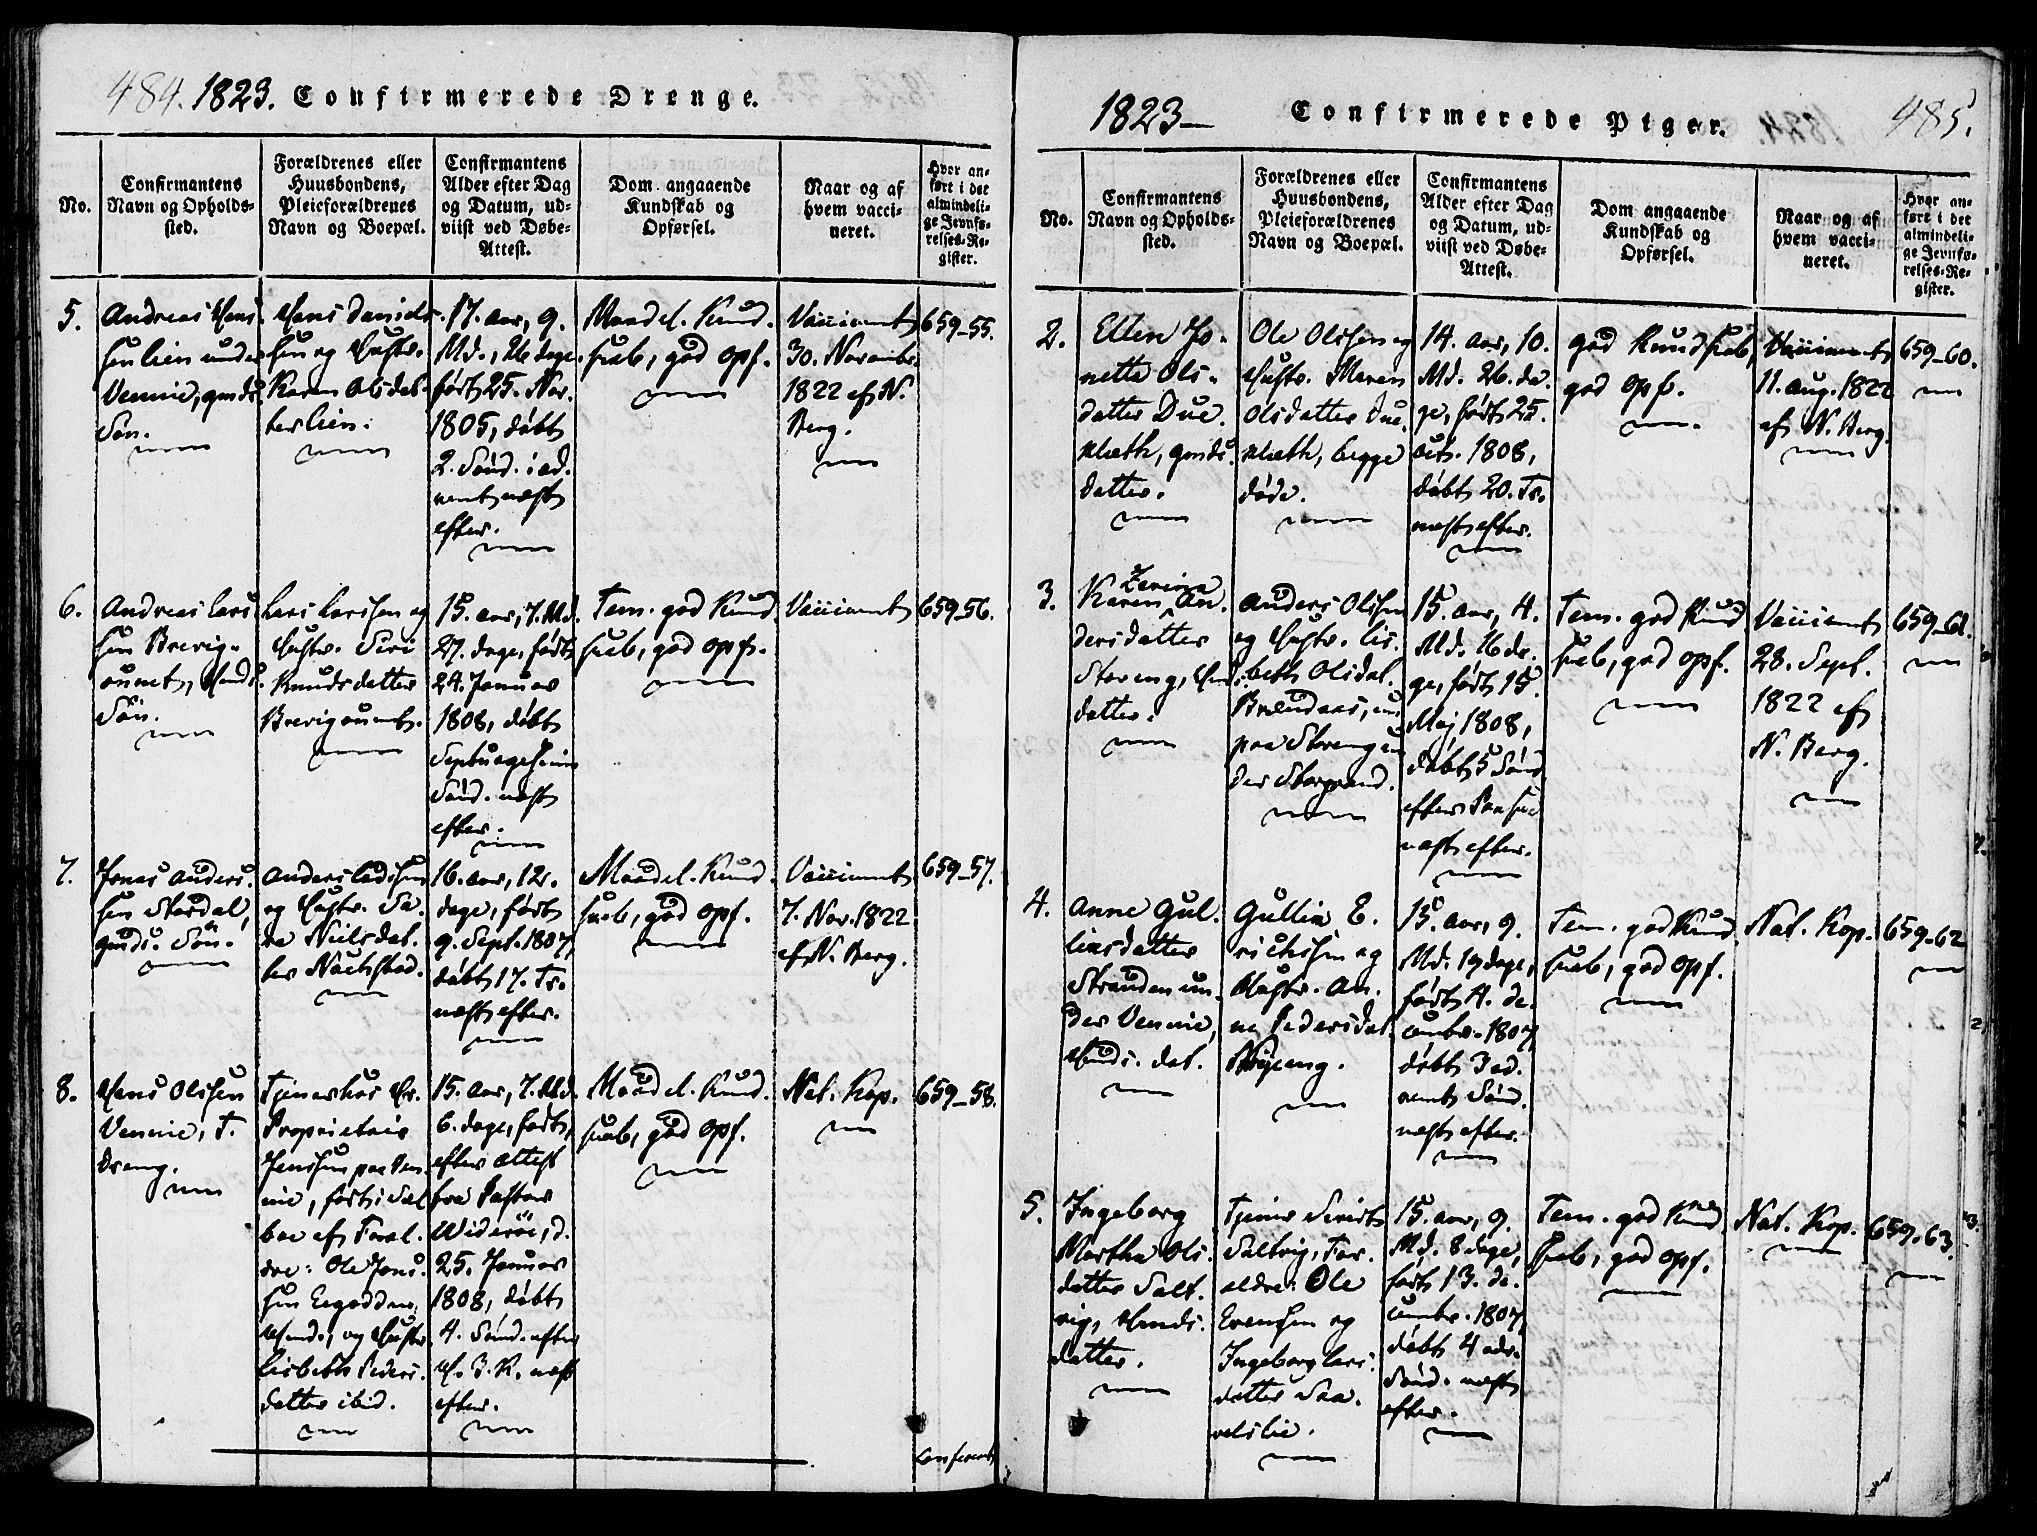 484. 1823. Confirmerede Drenge.
No.
Confirmantens
Navn og Opholds-
sted.
Forældrenes eller
Huusbondens,
Pleieforældrenes
Navn og Boepæl.
Confirmantens
Alder efter Dag
og Datum, ud-
viist ved Døbe-
Attest.
Dom angaaende
Kundskab og
Opførsel.
Naar og af
hvem vacci-
neret.
Hvor an-
ført i det
almindeli-
ge Jevnfø-
relses-Re-
gister.
5.
Andreas Hans
sen lien under
Vennie, gmds.
Søn.
Hans Daniels-
sen og Hustr.
Karen Olsdat-
ter lien.
17. aar, 9.
Md., 26 dage.
født 25. Nov.
1805, døbt
2. Sønd. i ad-
vent næst
efter.
Maadel. Kund.
skab, god opf.
Vaccineret
30. Novembr.
1822 af N.
Berg.
659-55.
6.
Andreas Lars
sen Brevig-
oumet, Hmds.
Søn.
Lars Larssen og
Hustr. Siri
Knudsdatter
Brevigoumet.
15. aar, 7. Md.
27. dage, født
24. Januar
1808, døbt
Septuagesima
Sønd. næst
efter.
Tem. god Kund
skab, god opf.
Vaccineret
659-56.
7.
Jonas Anders.
sen Stordal,
gmds. Søn.
Anders
og Hustr. Sa-
ra Nielsdat.
ter
16. aar, 12.
dage, født
9. Sept. 1807,
døbt 17. Tr.
næst efter.
Maadel. Kund.
skab, god opf.
Vaccineret
7. Nov. 1822
af N. Berg.
659-57.
8.
Hans Olssen
Vennie, T.
dreng.
Tjener hos Hr.
Proprietair
Jenssen paa Ven-
nie, født i Sæl
boe af Foræl.
dre: Ole Jons.
sen
Hmd., og Hustr.
Lisbeth Peders.
datter ibid.
15. aar, 7. Md.
6. dage, født,
efter attest
fra Pastor
Widerøe, d.
25. Januar
1808, døbt
4. Sønd. efter
H. 3. K. næst
efter.
Maadel. Kund.
skab, god opf.
Nat. Kop.
659-58.
Confereret
1823- Confirmerede Piger. 485.
No.
Confirmantens
Navn og Opholds-
sted.
Forældrenes eller
Huusbondens,
Pleieforældrenes
Navn og Boepæl.
Confirmantens
Alder efter Dag
og Datum, ud-
viist ved Døbe-
Attest.
Dom angaaende
Kundskab og
Opførsel.
Naar og af
hvem vacci-
neret.
Hvor an-
ført i det
almindeli-
ge Jevnfø-
relses-Re-
gister.
2.
Ellen Jo-
netta Ols-
datter Due.
klæth, gmds.
datter.
Ole Olssen og
Hustr. Maren
Olsdatter Due.
klæth, begge
døde.
14. aar, 10.
Md. 26. da.
ge, født 25.
oct. 1808,
døbt 20. Tr.
næst efter.
god Kundskab,
god opf.
Vaccineret
11. Aug. 1822
af N. Berg.
659-60.
3.
Zerina
Karen An.
dersdatter
Storeng, Hmds.
datter.
Anders Olssen
og Hustr. Lis.
beth Olsdat.
Brændaas, nu
paa Storeng un
der
15. aar, 4.
Md. 16 da.
ge, født 15.
Maj 1808,
døbt 5 Sønd
efter Paaske
næst efter.
Tem. god Kund
skab, god opf.
Vaccineret
28. Sept.
1822 af
N. Berg.
659-61.
4.
Anne Gul.
liksdatter
Stranden un-
der Vennie,
Hmds. dat.
Gullik E.
richssen og
Hustr. An.
ne Pedersdat.
15. aar, 9.
Md. 19 dage,
født 4. de.
cembr. 1807,
døbt 3 ad.
vents Sønd.
næst efter.
Tem. god Kund
skab, god opf.
Nat. Kop.
659-62
5.
Ingeborg
Martha Ols.
datter Salt.
vig, Hmds.
datter.
Tjener Sivert
Saltvig, For.
ældre: Ole
Evensen og
Ingeborg Lars.
datter Saa.
velslie.
15. aar, 9.
Md. 8 dage,
født 13. de.
cembr. 1807,
døbt 4 adv.
Sønd. næst
efter.
Tem. god Kund
skab, god opf.
Nat. Kop.
659-63.